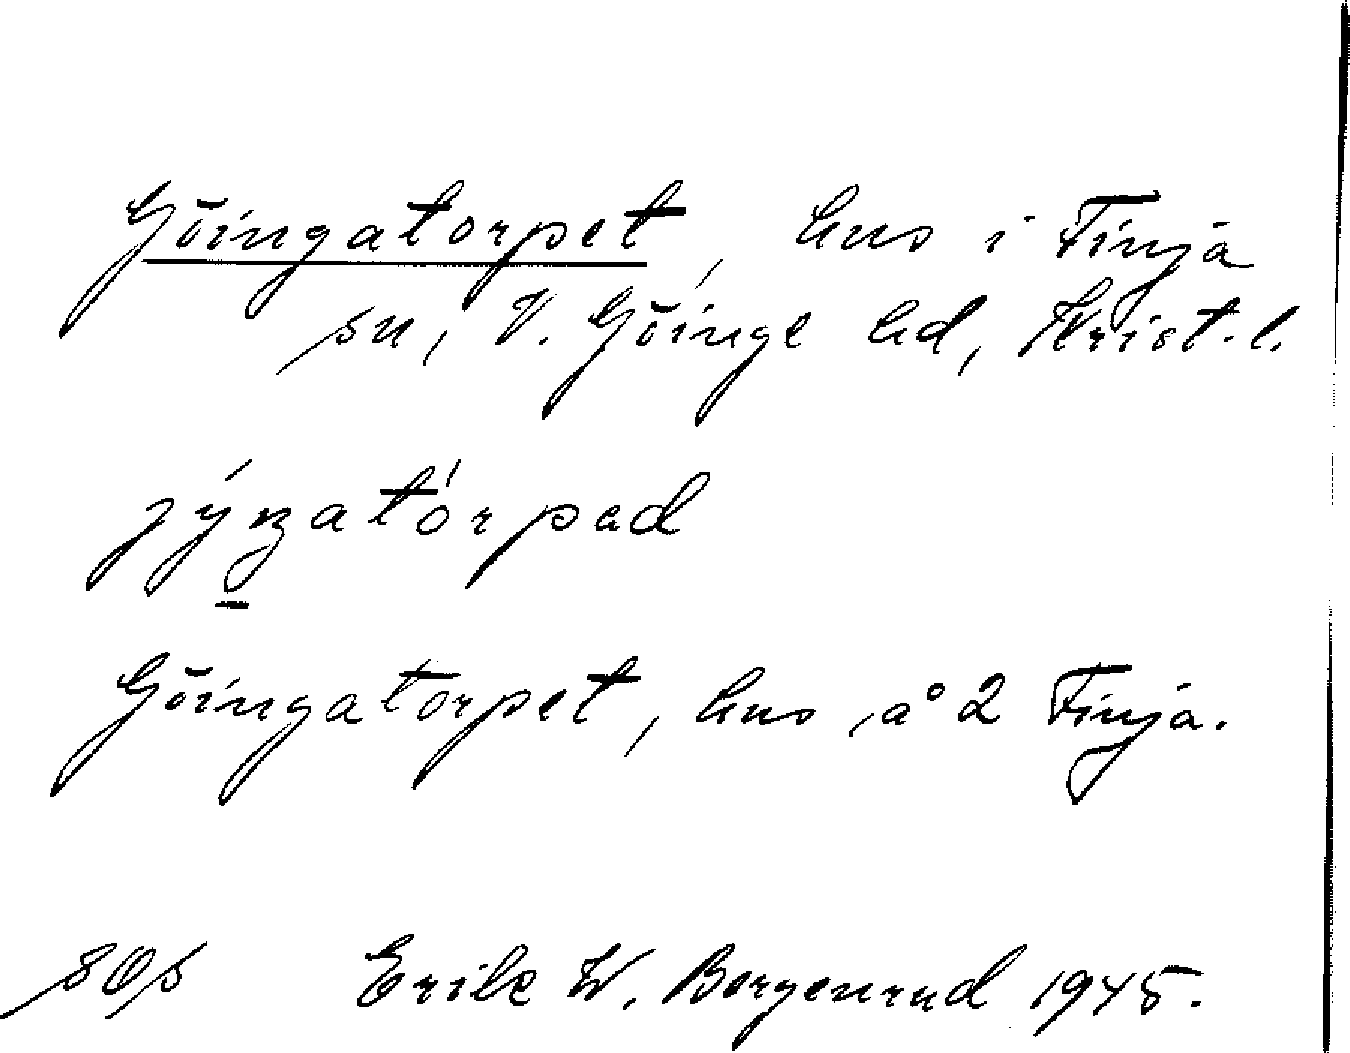 Göingatorpet, hus i Finja
sn, V. Göinge hd, Krist. l.
Göingatorpet, hus å 2 Finja.
sOs Erik W. Bergenrud 1945.